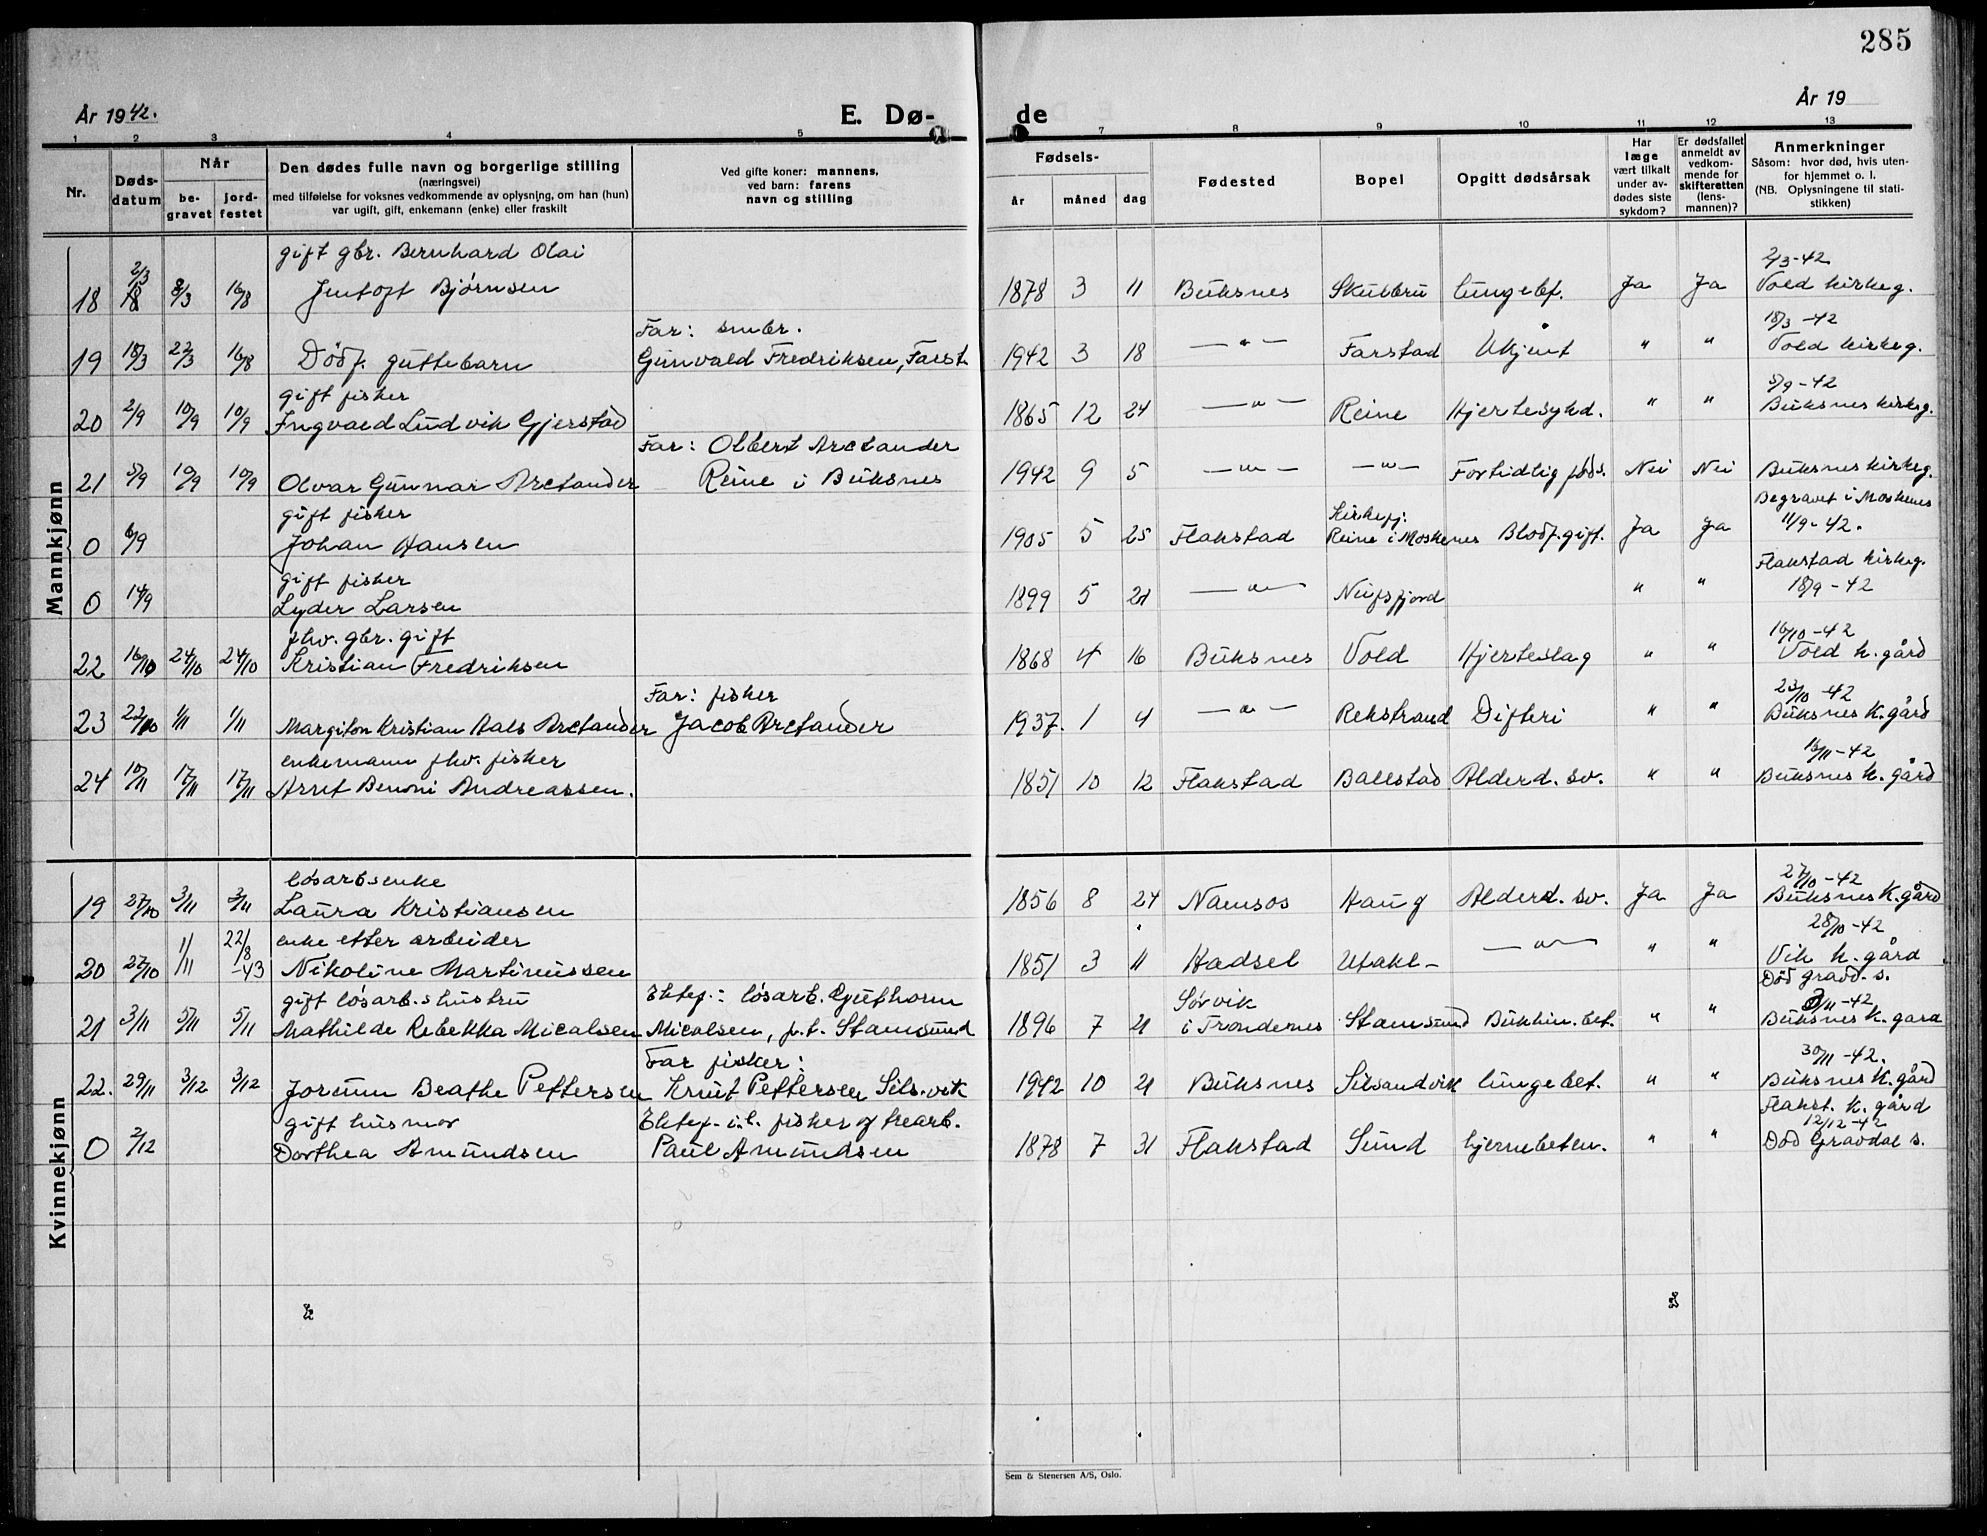 285
År 1942.
E. Dø-
de
År 19
1 2 3 4 5 7 8 9 10 11 12 13
Nr.
Døds-
datum
Når
be-
gravet
jord-
festet
Den dødes fulle navn og borgerlige stilling
(næringsvei)
med tilføielse for voksnes vedkommende av oplysning, om han (hun)
var ugift, gift, enkemann (enke) eller fraskilt
Ved gifte koner: mannens,
ved barn: farens
navn og stilling
Fødsels-
år måned dag
Fødested
Bopel
Opgitt dødsårsak
Har
læge
vært tilkalt
under av-
dødes siste
sykdom?
Er dødsfallet
anmeldt av
vedkom-
mende for
skifteretten
(lens-
mannen)?
Anmerkninger
Såsom: hvor død, hvis uten-
for hjemmet o. l.
(NB. Oplysningene til stati-
stikken)
Mannkjønn
gift gbr. Bernhard Olai 2/3-42
18 2/3 8/3 16/8 Jentoft Bjørnsen 1878 3 11 Buksnes Skubbru lungebet. Ja Ja Vold kirkeg.
Far: smbr. 18/3-42
19 18/3 22/3 16/8 Dødf. guttebarn Gunvald Fredriksen, Farst. 1942 3 18 — " — Farstad Ukjent " " Vold kirkeg.
gift fisker 5/9-42
20 2/9 10/9 10/9 Ingvald Ludvik Gjerstad 1865 12 24 — " — Reine Hjertesykd. " " Buksnes kirkeg.
Far: Olbert Arctander
21 5/9 10/9 10/9 Olvar Gunnar Arctander Reine i Buksnes 1942 9 5 — " — — " — Fortidlig føds. Nei Nei Buksnes kirkeg.
gift fisker Kirkefj. Begravet i Moskenes
0 6/9 Johan Hansen 1905 5 25 Flakstad Reine i Moskenes Blodf.gift. Ja Ja 11/9-42.
gift fisker Flakstad kirkeg.
0 14/9 Lyder Larsen 1899 5 21 — " — Nufsfjord " " 18/9-42
fhv. gbr. gift 16/10-42
22 16/10 24/10 24/10 Kristian Fredriksen 1868 4 16 Buksnes Vold Hjerteslag " " Vold k. gård
Far: fisker 23/10-42
23 22/10 1/11 1/11 Margiton Kristian Aals Arctander Jacob Arctander 1937. 1 4 — " — Rekstrand Difteri " " Buksnes K. gård
enkemann fhv. fisker 13/11-42
24 10/11 17/11 17/11 Arnt Benoni Andreassen. 1851 10 12 Flakstad Ballstad Alderd. sv. " " Buksnes k. gård
Kvinnekjønn
løsarbsenke 27/10-42
19 27/10 3/11 3/11 Laura Kristiansen 1856 8 24 Namsos Haug Alderd. sv. Ja Ja Buksnes K. gård
enke etter arbeider 28/10-42
20 27/10 1/11 22/8-43 Nikoline Martinussen 1851 3 11 Hadsel Utakl- — " — " " Vik k. gård
gift løsarb.s hustru Ektef.: løsarb. Gjuthorm Sørvik Død gravd. s.
21 3/11 5/11 5/11 Mathilde Rebekka Micalsen Micalsen, p.t. Stamsund 1896 7 21 i Trondernes Stamsund Bukhin.bet. " " 3/11-42 Buksnes K. gård
Far fisker: 30/11-42.
22. 29/11 3/12 3/12 Jorunn Beathe Pettersen Knut Pettersen Sils.vik 1942 10 21 Buksnes Silsandvik lungebet. " " Buksnes K. gård
gift husmor Ektef. i.l. fisker og trearb. Flakst. k. gård
12/12-42
0 2/12 Dorthea Amundsen Paul Amundsen 1878 7 31 Flakstad Sund hjernebeten. " " Død Gravdal s.
Sem & Stenersen A/S, Oslo.